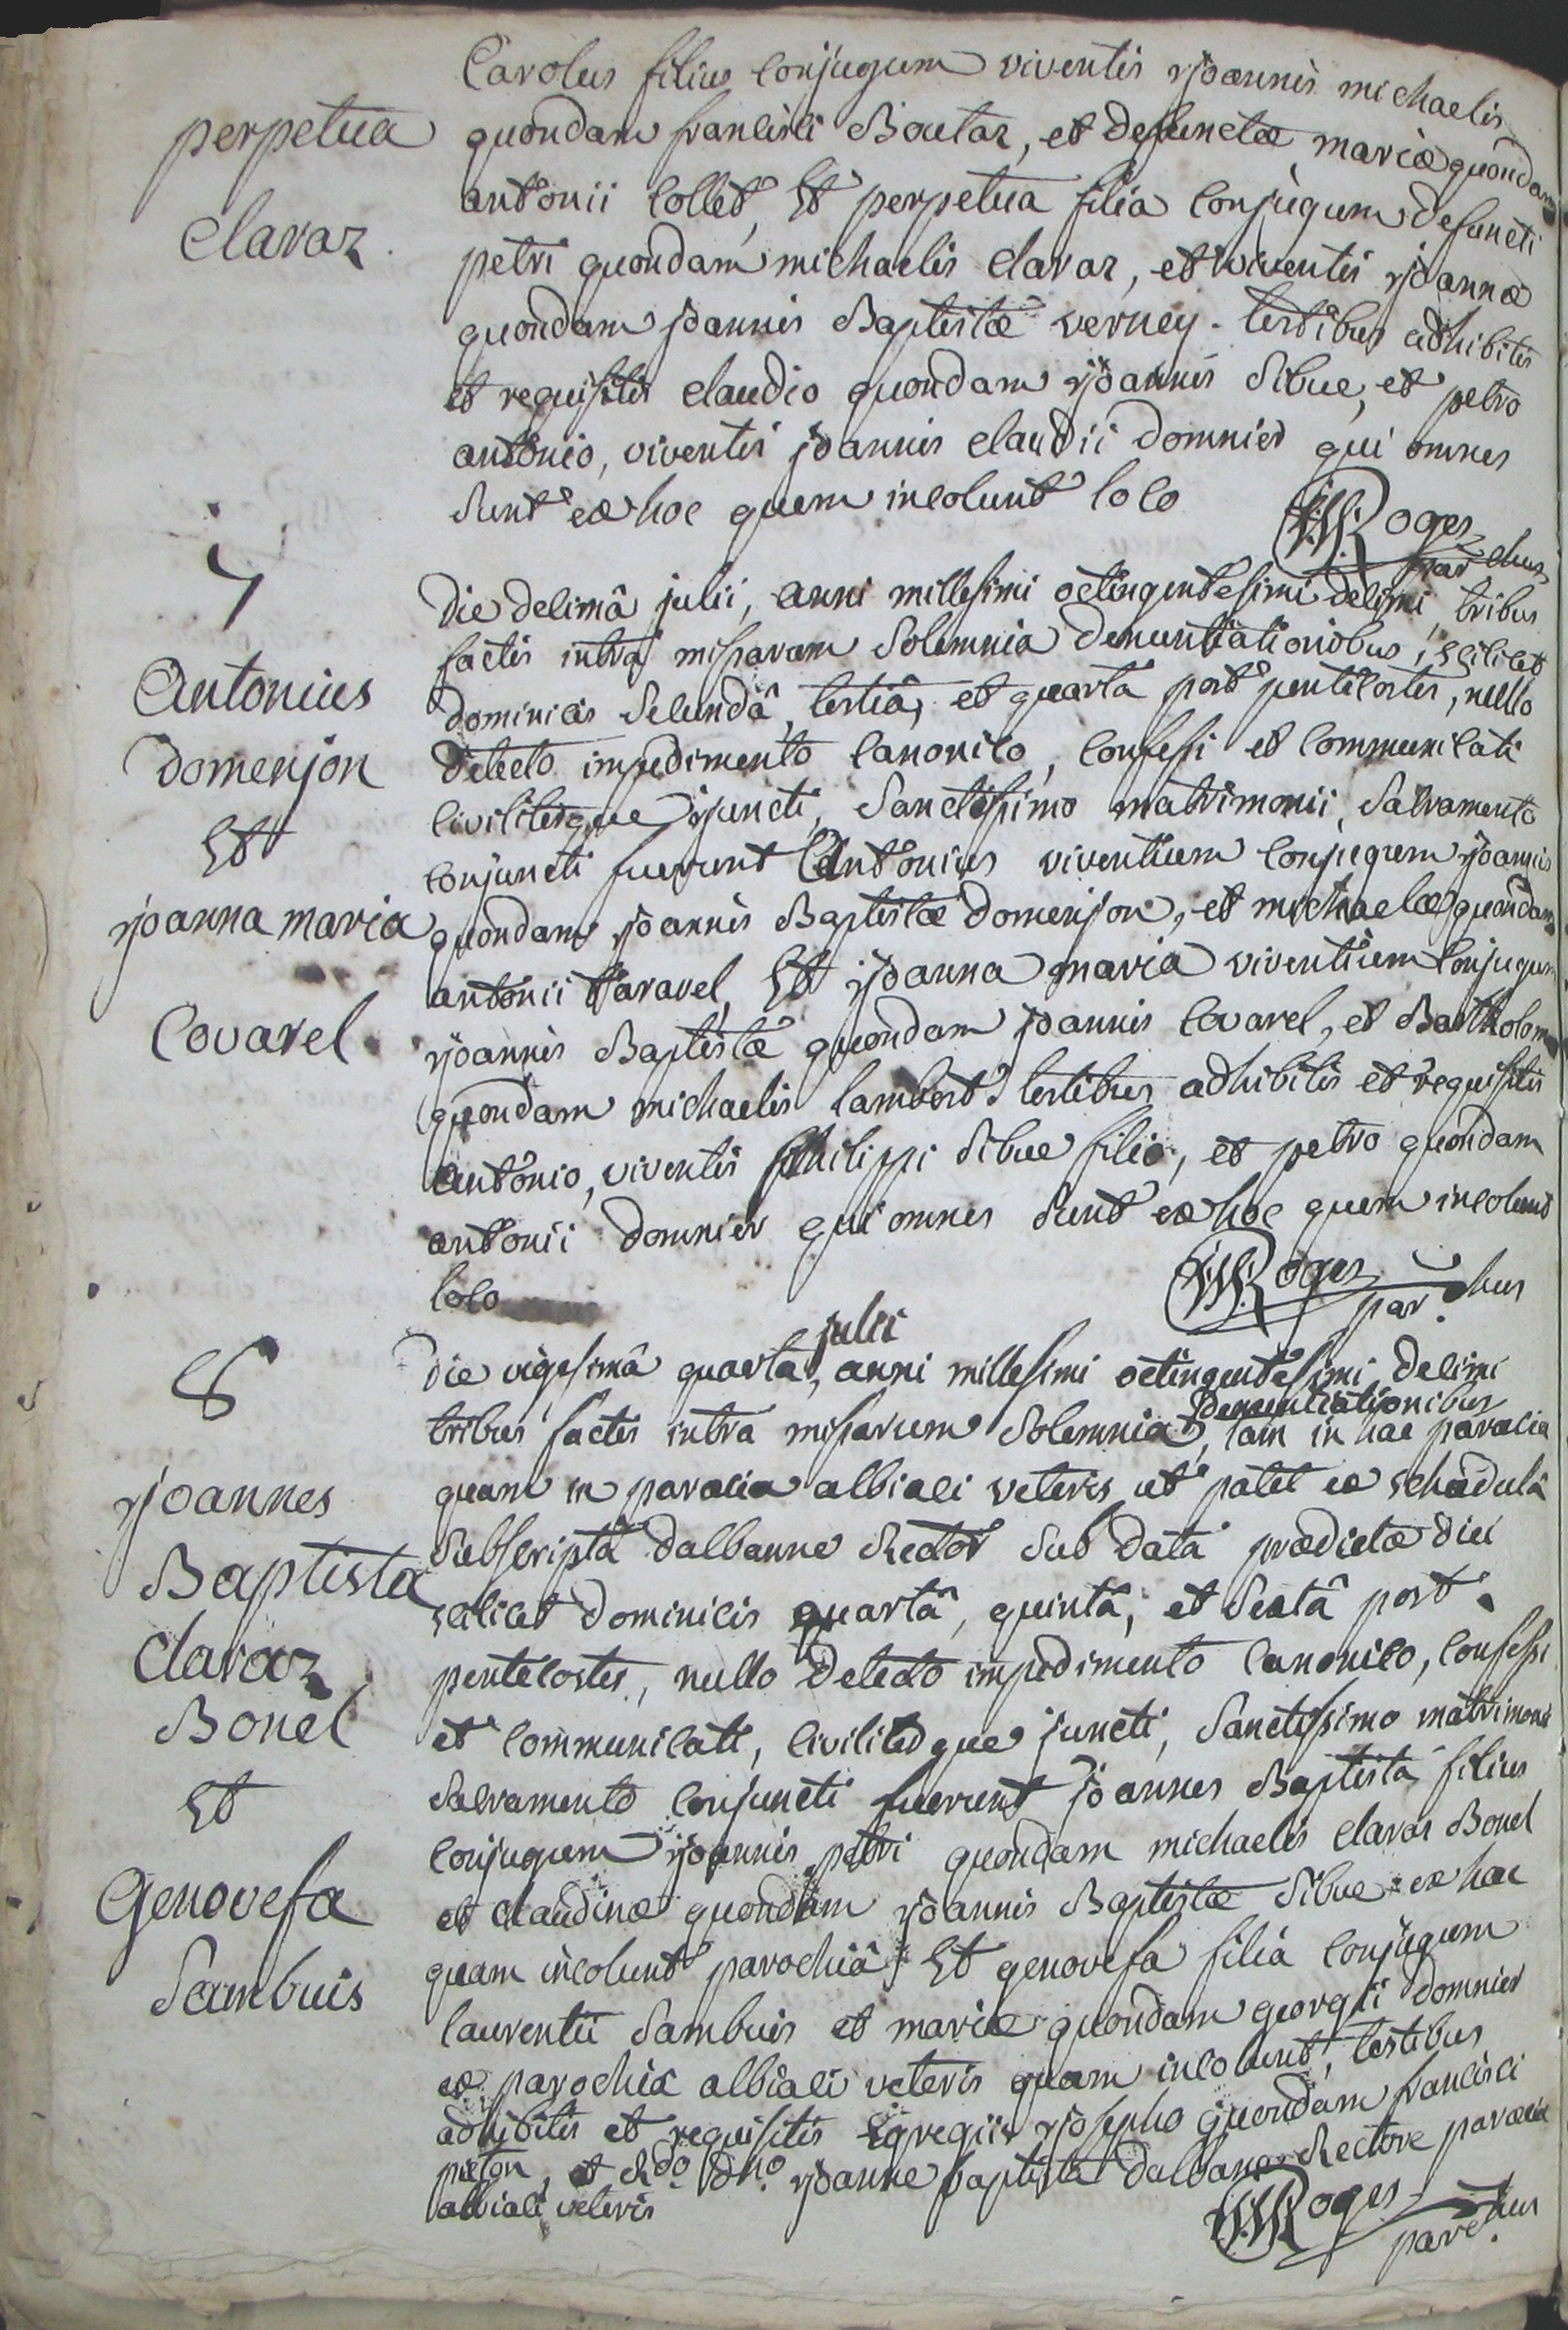 Carolus filius conjugum viventis joannis michaelis
perpetua
quondam francisci Boutaz, et defunctæ mariæ quondam
antonii collet, Et perpetua filia conjugum defuncti
Claraz
petri quondam michaelis claraz, et viventis joannæ
quondam joannis Baptistæ verney. testibus adhibitis
et requisitis claudio quondam joannis Sibue, et petro
antonio, viventis joannis claudii Domnier qui omnes
Sunt ex hoc quem incolunt loco
Roges parchus
7
Antonius
Domenjon
Et
joanna maria
Covarel
Die decimâ julii, anni millesimi octingentesimi decimi, tribus
factis intra missarum Solemnia Denuntiationibus, scilicet
dominicis Secundâ, tertiâ, et quarta post pentecostes, nullo
detecto impedimento canonico, confessi et communicati
civiliterque juncti, Sanctissimo matrimonii, Sacramento
conjuncti fuerunt Antonius viventium conjugum joannis
quondam joannis Baptistæ Domenjon, et michaelæ quondam
antonii taravel, Et joanna maria viventium conjugum
joannis Baptistæ quondam joannis Covarel, et Bartholom
quondam michaelis lambert. testibus adhibitis et requisitis
antonio, viventis philippi Sibue filio, et petro quondam
antonii Domnier qui omnes Sunt ex hoc quem incolunt
loco
Roges parchus
8
joannes
Baptista
Claraz
Bonel
Et
Genovefa
Sambuis
Die vigesimâ quarta, julii anni millesimi octingentesimi decimi
tribus factis intra missarum Solemnia Denuntiationibus, tam in hac parœcia
quam in parœcia albiaci veteris ut patet ex schedulâ
Subscriptâ Dalbanne Rector Sub Data prædictæ diei
scilicet Dominicis quartâ, quintâ, et Sextâ post
pentecostes, nullo Detecto impedimento canonico, confessi
et communicati, civiliterque juncti, Sanctissimo matrimonii
Sacramento conjuncti fuerunt joannes Baptista filius
conjugum joannis petri quondam michaelis claraz Bonel
et claudinæ quondam joannis Baptistæ Sibue ex hac
quam incolunt parochiâ, Et genovefa filia conjugum
laurentii Sambuis et mariæ quondam georgii Domnier
ex parochia albiaci veteris quam incolunt, testibus
adhibitis et requisitis Egregiis josepho quondam francisci
et Rdo. Dno. joanne baptista Dalbane Rectore parœciæ
albiaci veteris
Roges parchus